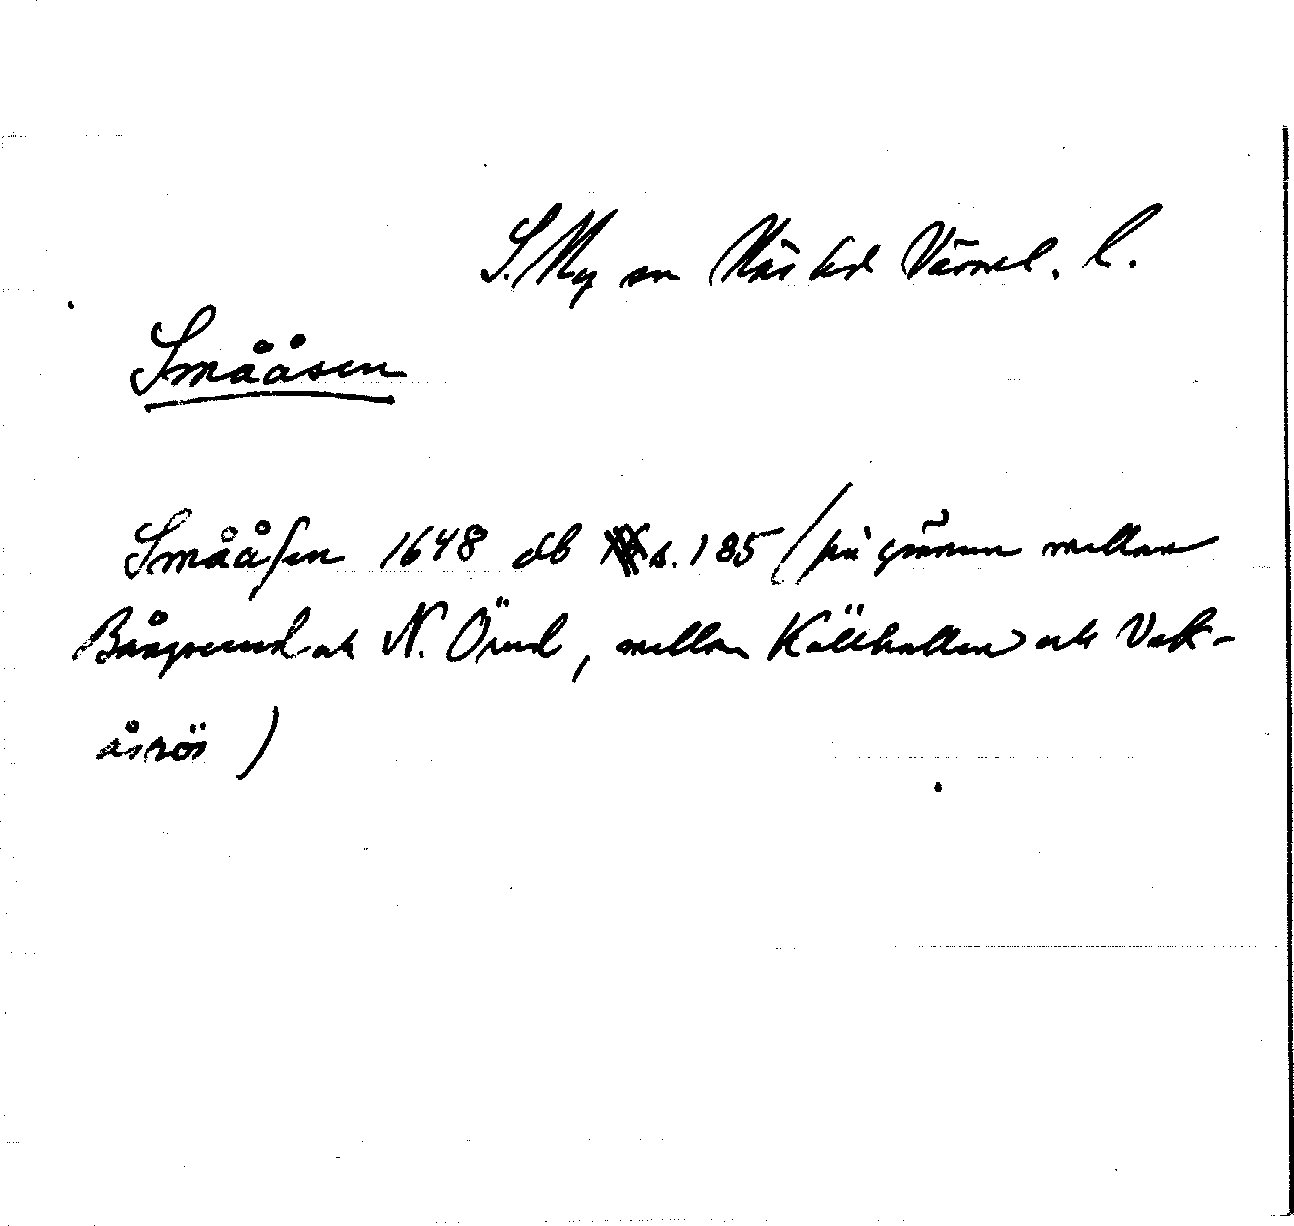 S. Ny sn Näs hd Värml. l.
Smååsen
Smååsen 1648 db s. 185 (på gränsen mellan
Bångerud och N. Örud, mellan Källhallen och Vak-
åsrös )